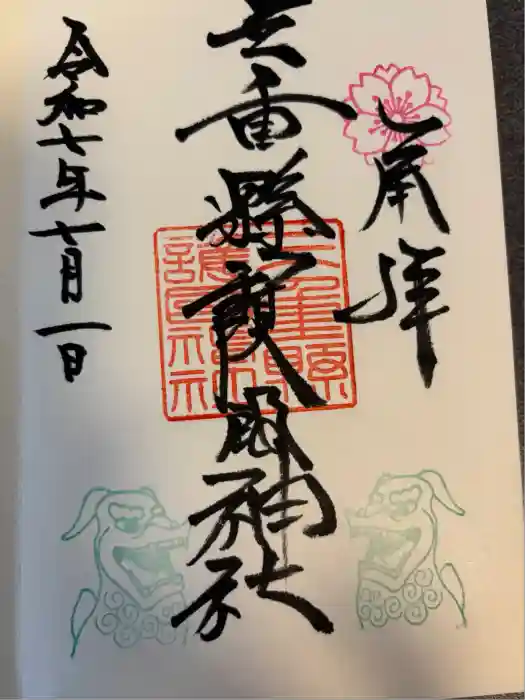 奉拝
三重縣護国神社
三重縣護國神社
令和七年七月一日